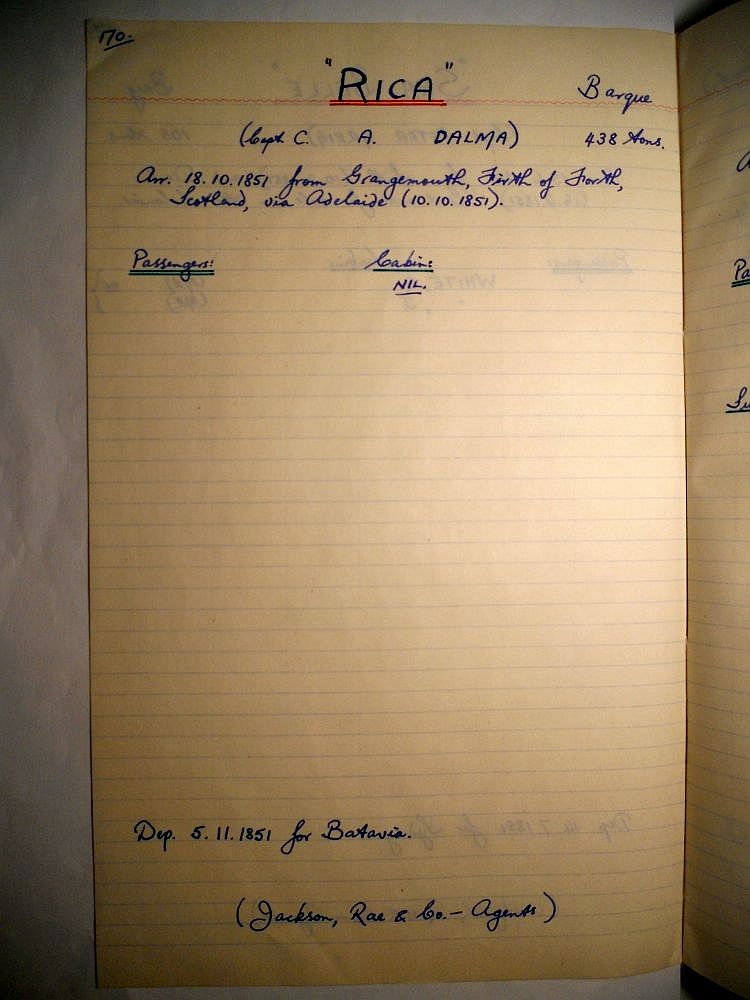 170.
"RICA" Barque
(Capt. C. A. DALMA) 438 tons.
Arr. 18.10.1851 from Grangemouth, Firth of Forth,
Scotland, via Adelaide (10.10.1851).
Passengers: Cabin:
NIL.
Dep. 5.11.1851 for Batavia.
(Jackson, Rae & Co. - Agents)